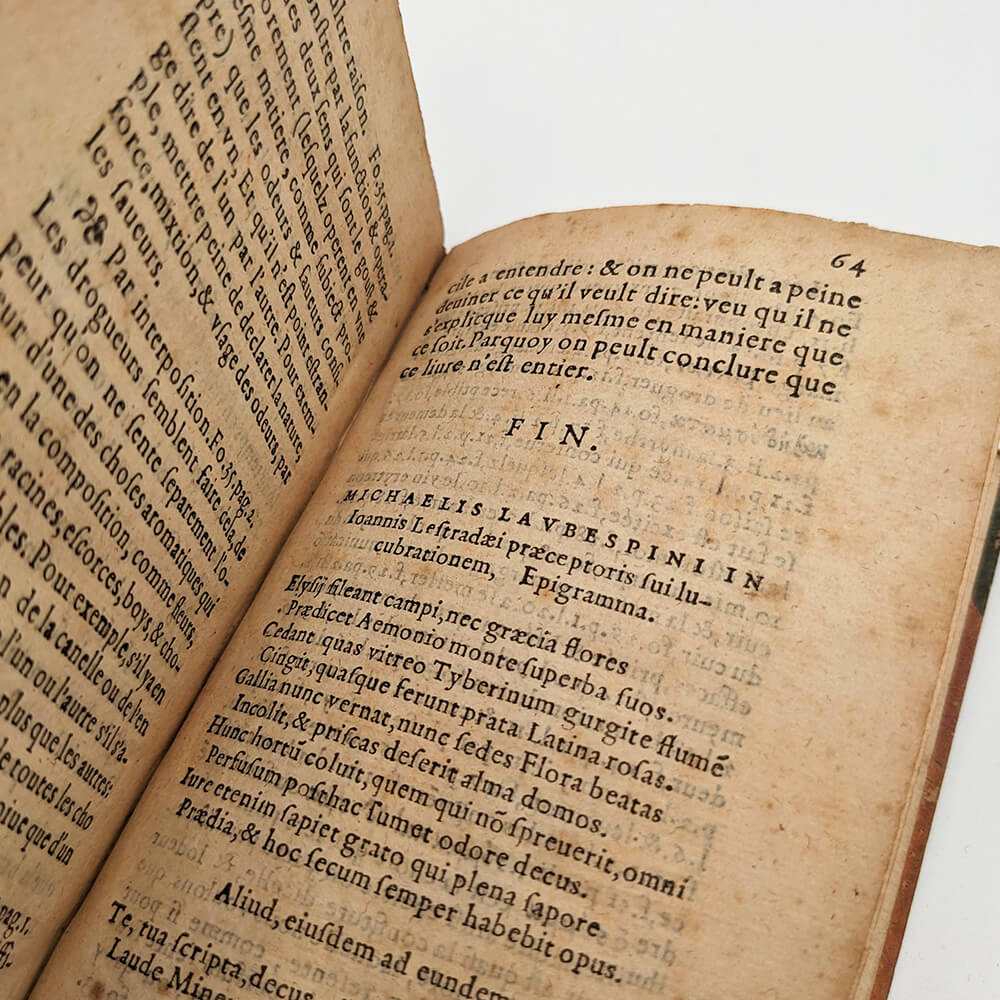 ultre raison. Fo.35.pag.1.
nſtre par la function & opera-
des deux ſens qui ſont le gouſt &
orement (leſquelz operent en vne
eſme matiere, comme ſubiect pro-
pre) que les odeurs & ſaueurs conſi-
ſtent en vn, Et qu'il n'eſt point eſtran-
ge dire de l'un par l'autre. Pour exem-
ple, mettre peine de declarer la nature,
force, mixtion, & vſage des odeurs, par
les ſaueurs.
Par interpoſition. Fo.35.pag.2.
Les drogueurs ſemblent faire cela, de
peur qu'on ne ſente ſeparement l'o-
eur d'une des choſes aromatiques qui
en la compoſition, comme fleurs,
racines, eſcorces, boys, & cho-
bles. Pour exemple, s'il y a en
n de la canelle ou de l'en
l'un ou l'autre s'il s'a-
plus que les autres:
e toutes les cho
que d'un
pag.1.
64
cile a entendre: & on ne peult a peine
deuiner ce qu'il veult dire: veu qu il ne
s'explicque luy meſme en maniere que
ce ſoit. Parquoy on peult conclure que
ce liure n'eſt entier.
FIN.
MICHAELIS LAVBESPINI IN
Ioannis Leſtradæi præceptoris ſui lu-
cubrationem, Epigramma.
Elyſij ſileant campi, nec græcia flores
Prædicet Aemonio monte ſuperba ſuos.
Cedant quas vitreo Tyberinum gurgite flumē
Cingit, quaſque ferunt prata Latina roſas.
Gallia nunc vernat, nunc ſedes Flora beatas
Incolit, & priſcas deſerit alma domos.
Hunc hortū coluit, quem qui nō ſpreuerit, omni
Perfuſum poſthac ſumet odore decus.
Iure etenim ſapiet grato qui plena ſapore
Prædia, & hoc ſecum ſemper habebit opus.
Aliud, eiuſdem ad eundem
Te, tua ſcripta, decus
Laude